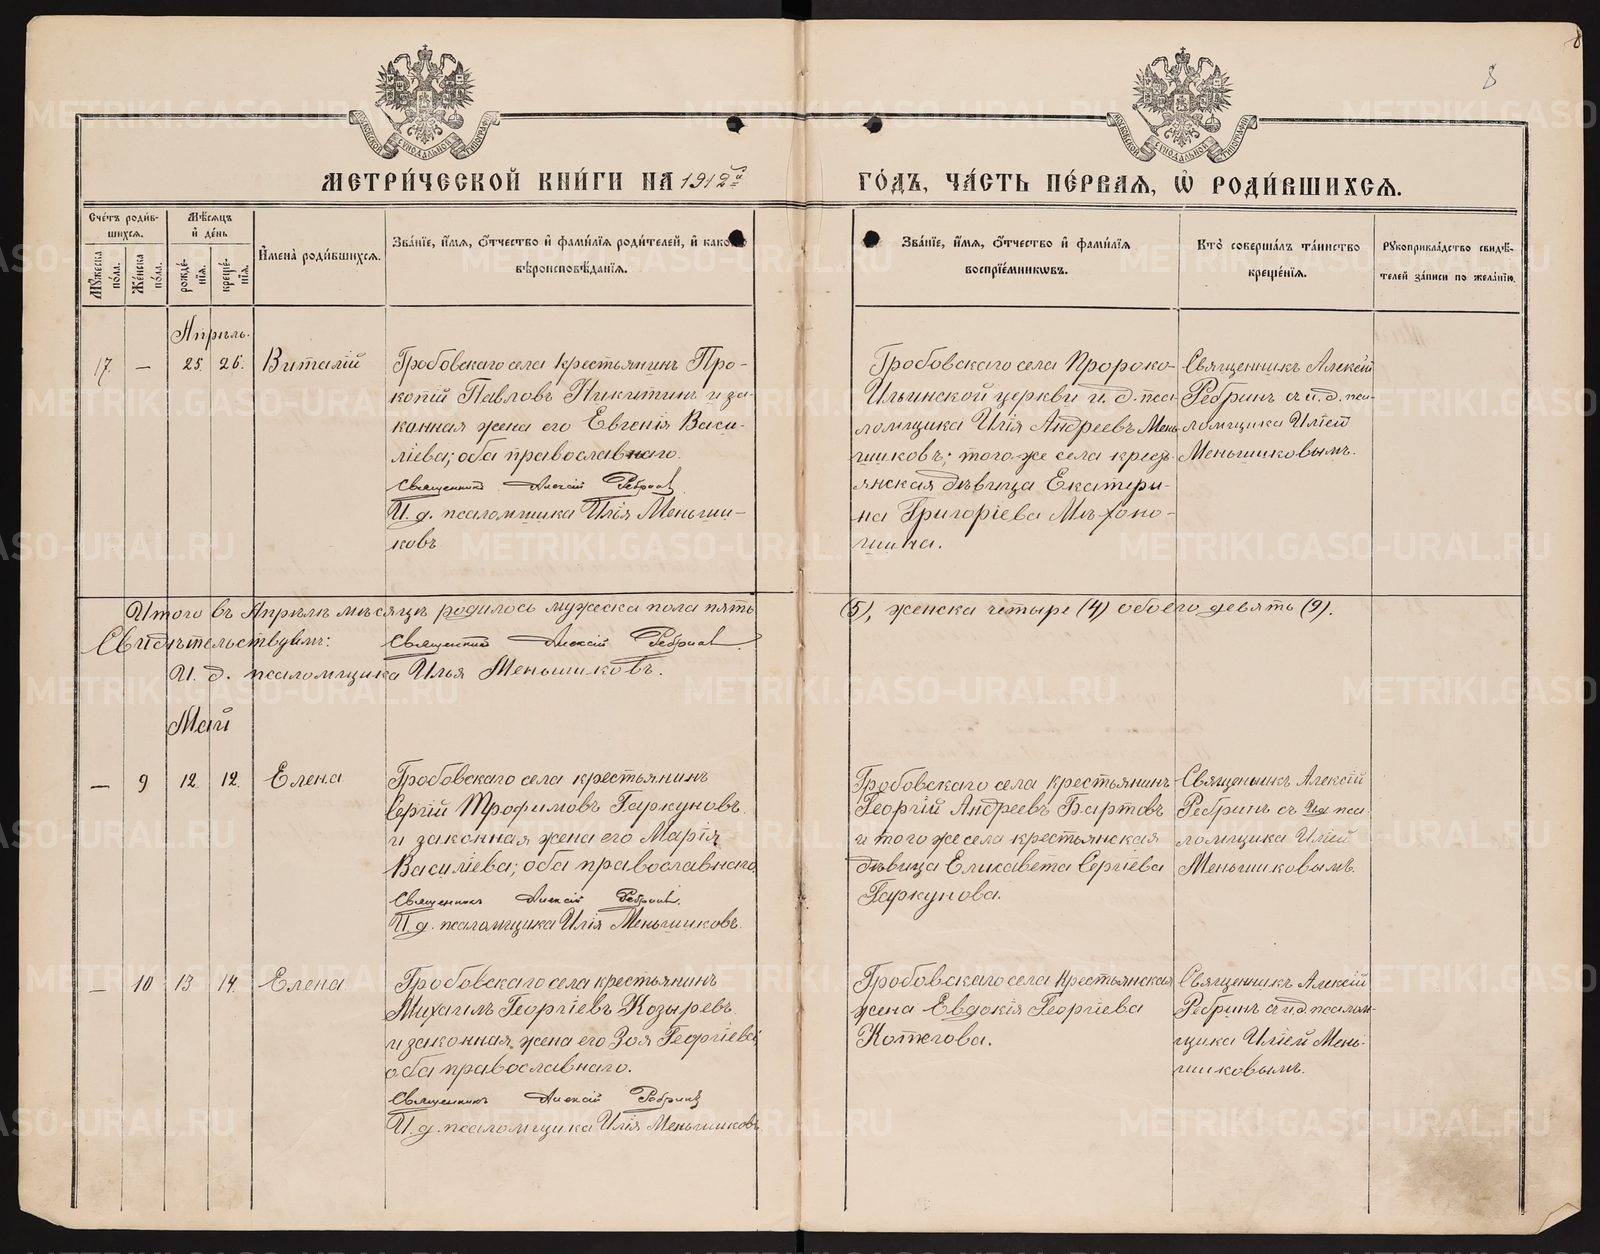 8
МЕТРИ́ЧЕСКОЙ КНИ́ГИ НА 1912й
ГО́ДЪ, ЧА́СТЬ ПЕ́РВАЯ, Ѡ҆ РОДИ́ВШИХСЯ.
Сче́тъ роди́в-
шихся.
Мꙋ́жеска по́ла.
Же́нска по́ла.
Мѣ́сяцъ
и҆ де́нь
рожде́-
нїѧ.
креще́-
нїѧ.
И҆мена̀ роди́вшихся.
Зва́нїе, и҆́мѧ, ѻ҆́тчество и҆ фами́лїѧ роди́телей, и҆ како́гѡ
вѣроисповѣ́данїѧ.
Зва́нїе, и҆́мѧ, ѻ҆́тчество и҆ фами́лїѧ
воспрїе́мникѡвъ.
Кто̀ соверша́лъ та́инство
креще́нїѧ.
Рꙋкоприкла́дство свидѣ́-
телей за́писи по жела́нїю.
Апрѣль.
17. — 25. 26. Виталій
Гробовскаго села крестьянинъ Про-
копій Павловъ Никитинъ и за-
конная жена его Евгенія Васи-
ліева; оба православнаго.
Священникъ Алексій Ребринъ
И. д. псаломщика Илія Меньши-
ковъ
Гробовскаго села Пророко-
Ильинской церкви и. д. пса-
ломщика Илія Андреевъ Мень-
шиковъ; того же села кресть-
янская дѣвица Екатери-
на Григоріева Мѣхоно-
шина.
Священникъ Алексій
Ребринъ съ и. д. пса-
ломщика Иліей
Меньшиковымъ.
Итого въ Апрѣлѣ мѣсяцѣ родилось мужеска пола пять (5), женска четыре (4) обоего девять (9).
Свидѣтельствуемъ: Священникъ Алексій Ребринъ
И. д. псаломщика Илья Меньшиковъ.
Май
— 9 12. 12. Елена
Гробовскаго села крестьянинъ
Сергій Трофимовъ Гаркуновъ
и законная жена его Марія
Василіева; оба православнаго.
Священникъ Алексій Ребринъ.
И. д. псаломщика Илія Меньшиковъ.
Гробовскаго села крестьянинъ
Георгій Андреевъ Бартовъ
и того же села крестьянская
дѣвица Елисавета Сергіева
Гаркунова.
Священникъ Алексій
Ребринъ съ и.д. пса-
ломщика Иліей
Меньшиковымъ.
— 10 13 14. Елена
Гробовскаго села крестьянинъ
Михаилъ Георгіевъ Козыревъ
и законная жена его Зоя Георгіева;
оба православнаго.
Священникъ Алексій Ребринъ
И. д. псаломщика Илія Меньшиковъ
Гробовскаго села крестьянская
жена Евдокія Георгіева
Котегова.
Священникъ Алексій
Ребринъ съ и.д. псалом-
щика Иліей Мень-
шиковымъ.
METRIKI.GASO-URAL.RU